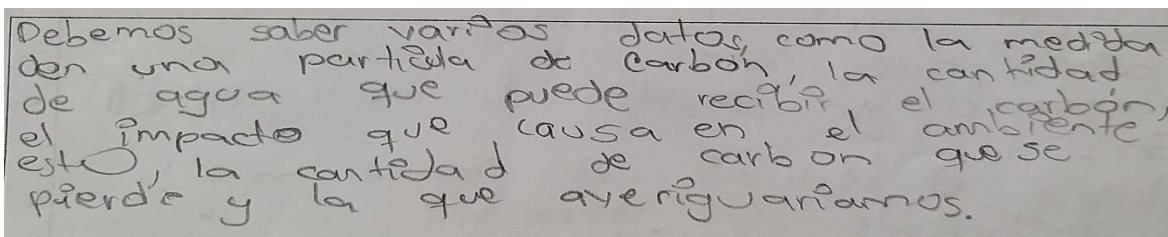 Debemos saber varios datos, como la medida
den una particula de carbón, la cantidad
de agua que puede recibir el carbón,
el impacto que causa en el ambiente
esto, la cantidad de carbon que se
pierde y la que averiguariamos.